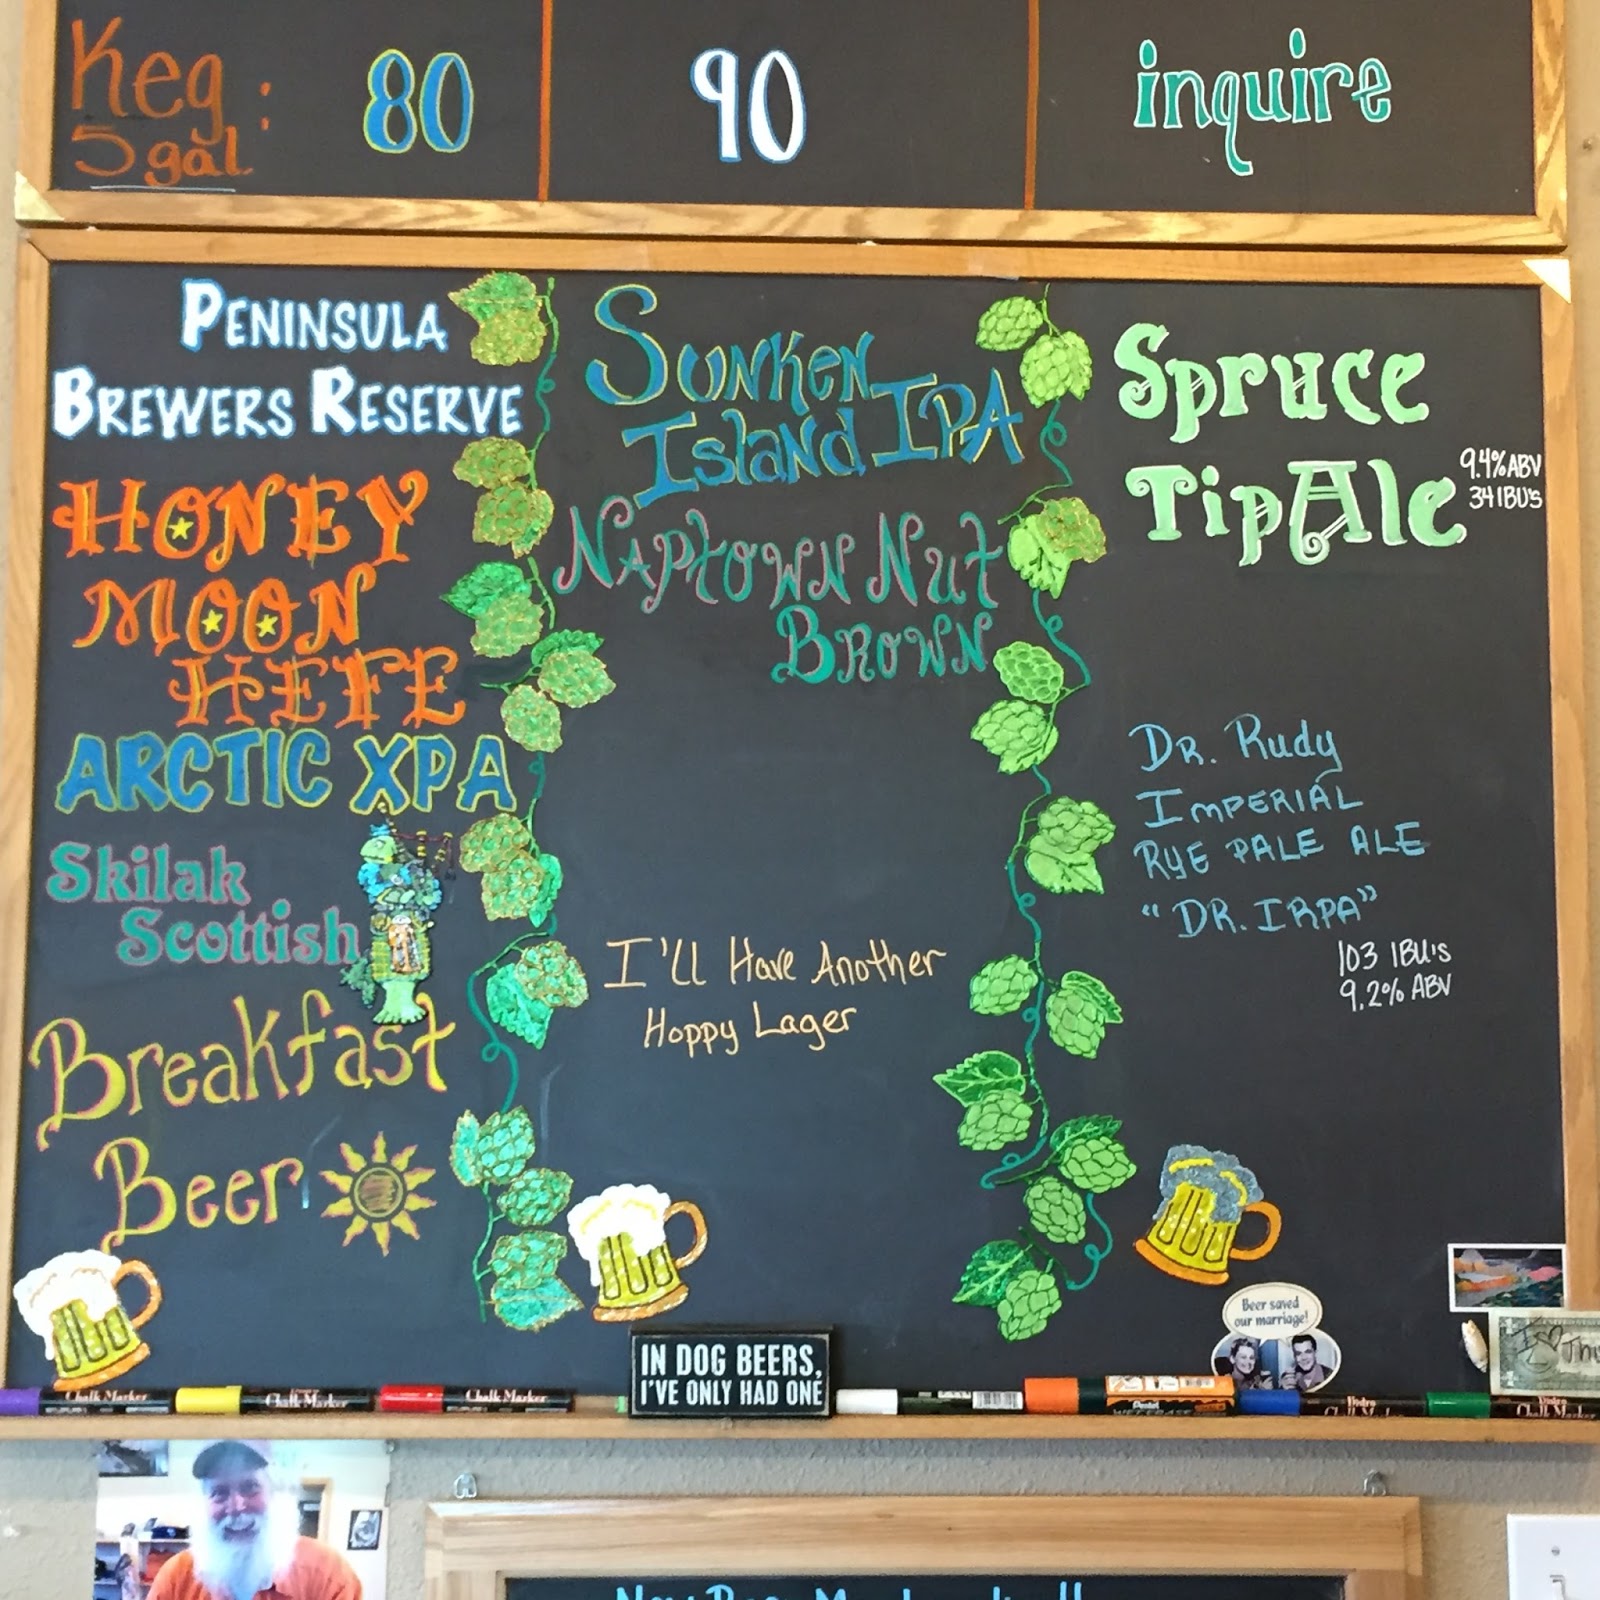 Keg: 80 90 inquire
5 gal.
PENINSULA
BREWERS RESERVE
HONEY
MOON
HEFE
ARCTIC XPA
Skilak
Scottish
Breakfast
Beer
Sunken
Island IPA
Naptown Nut
Brown
I'll Have Another
Hoppy Lager
Spruce
Tip Ale
9.4% ABV
34 IBU's
Dr. Rudy
Imperial
Rye Pale Ale
"DR. IRPA"
103 IBU's
9.2% ABV
Beer saved
our marriage!
IN DOG BEERS,
I'VE ONLY HAD ONE
Chalk Marker
Chalk Marker
Chalk Marker
Pentel
Bistro
Chalk Marker
Bistro
Chalk Marker